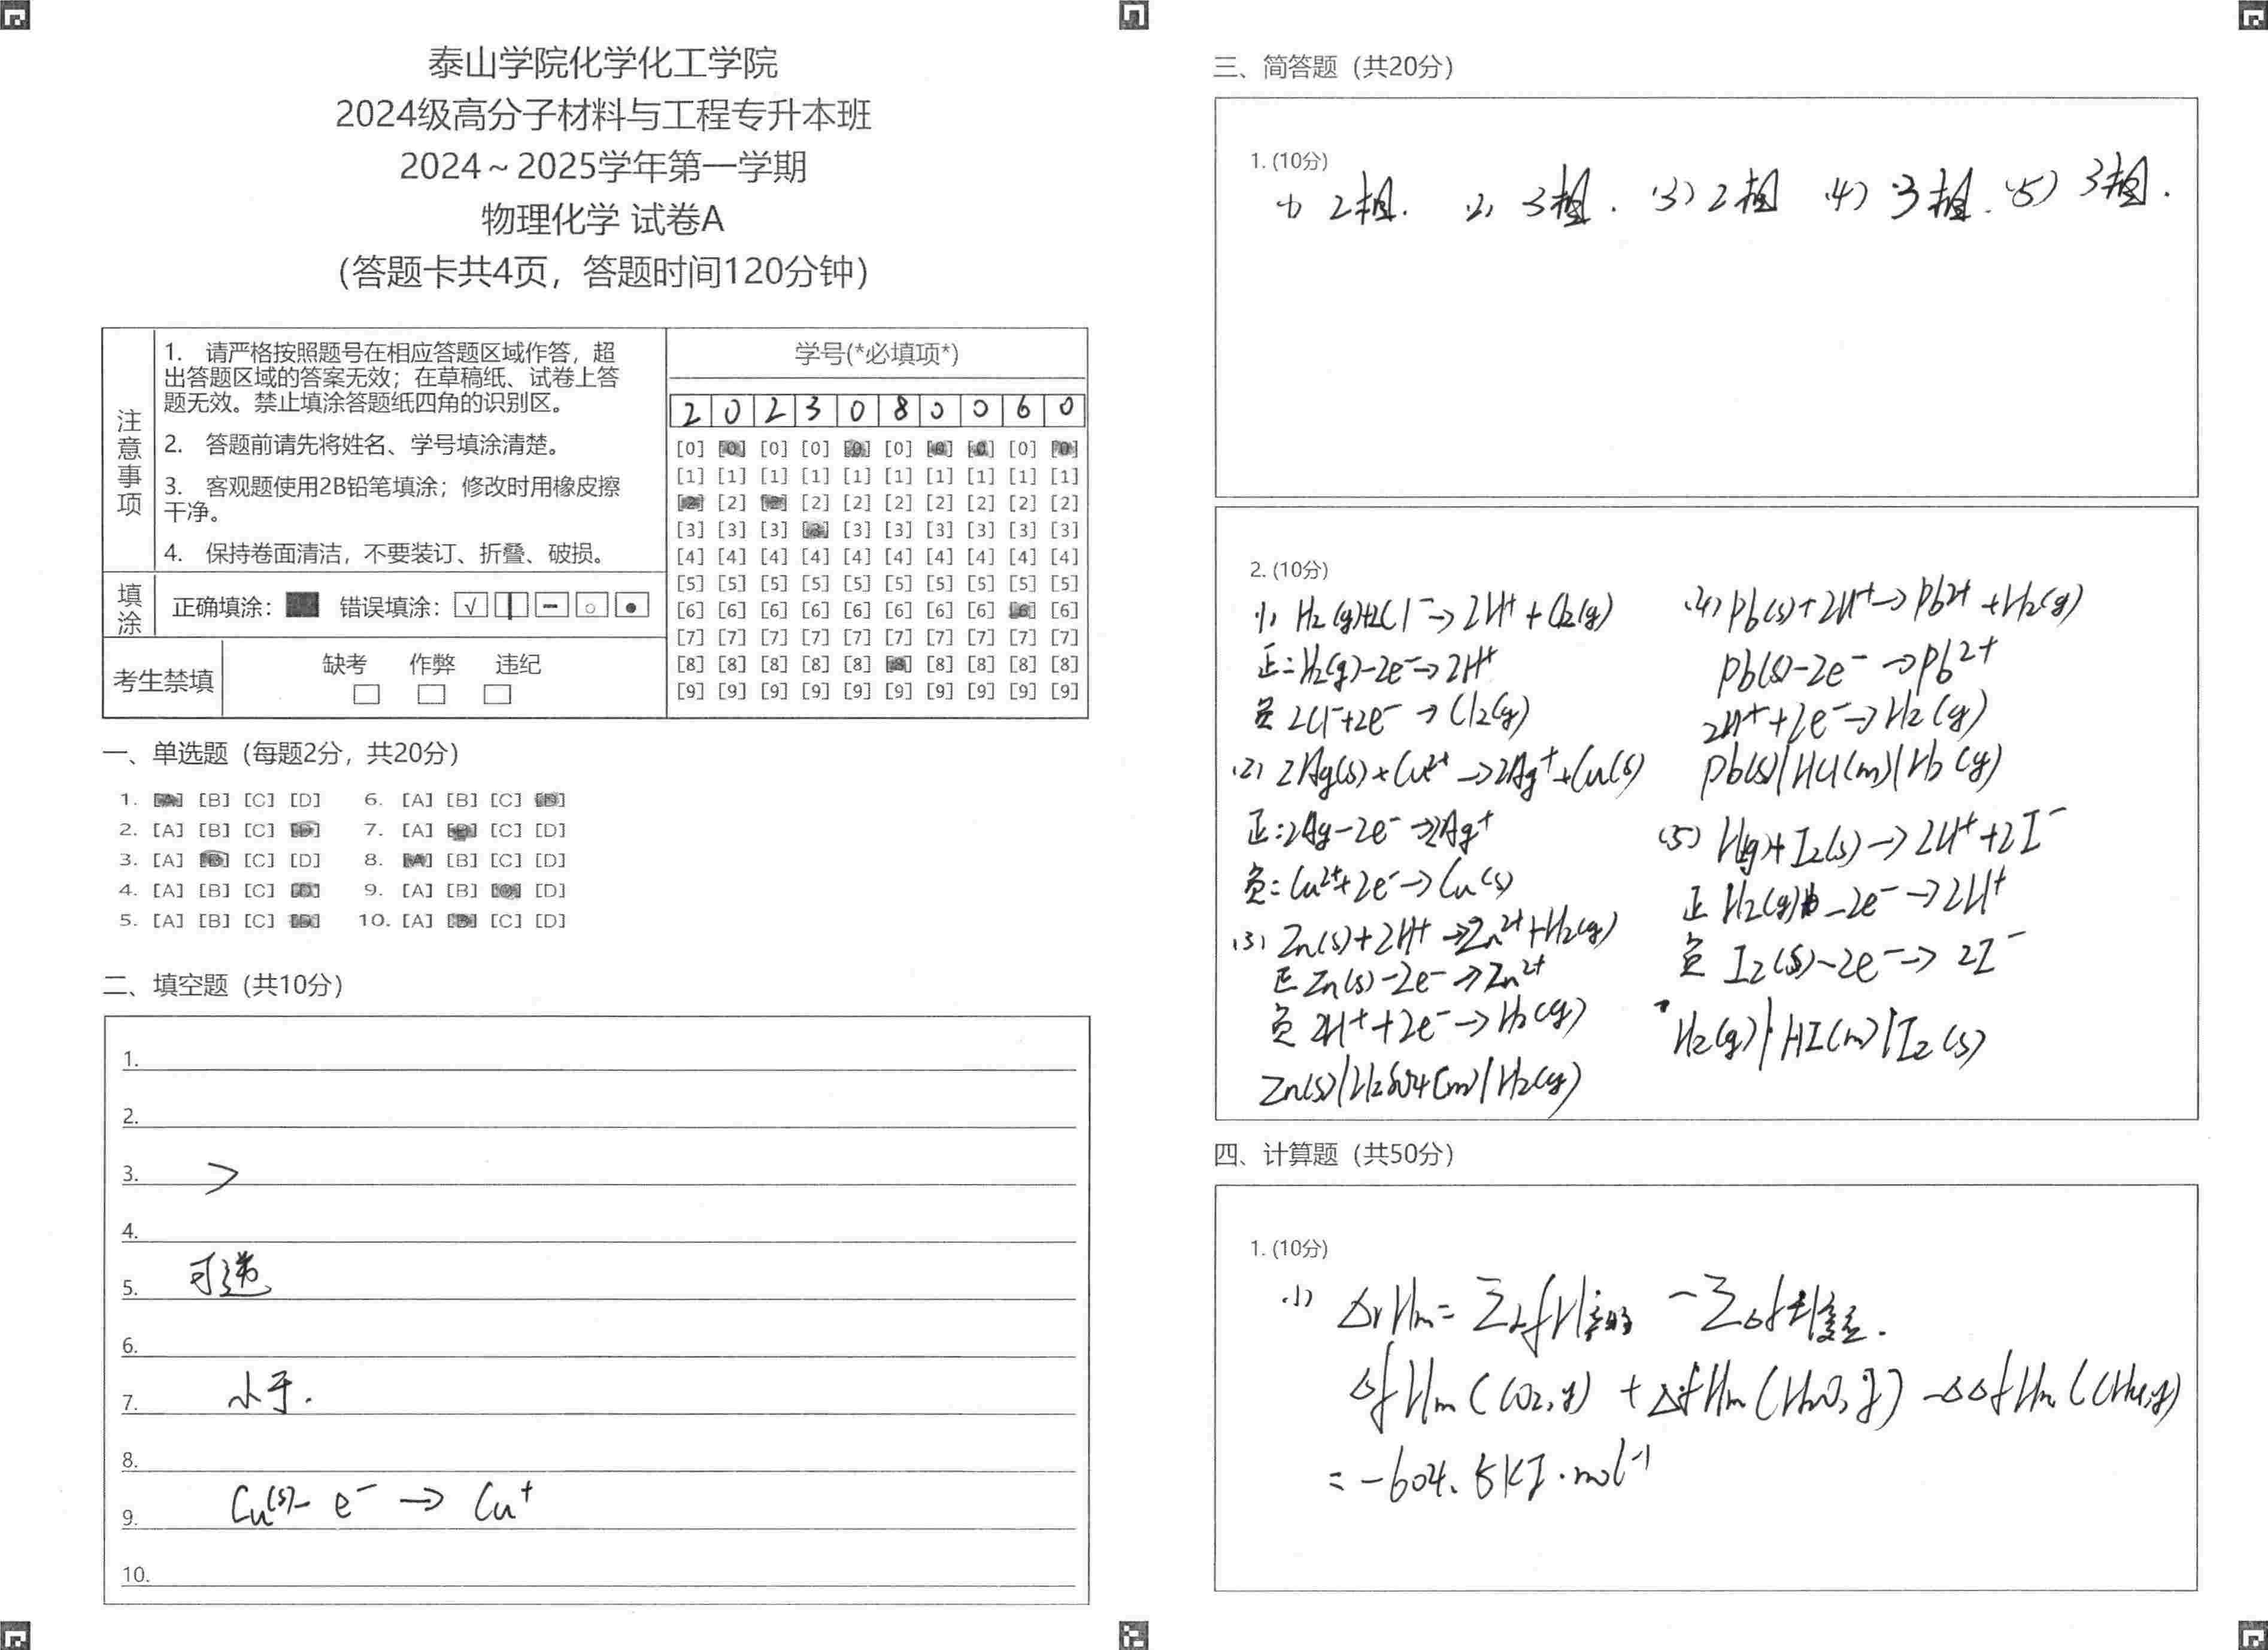 泰山学院化学化工学院
2024级高分子材料与工程专升本班
2024～2025学年第一学期
物理化学 试卷A
（答题卡共4页，答题时间120分钟）
注意事项
1. 请严格按照题号在相应答题区域作答，超
出答题区域的答案无效；在草稿纸、试卷上答
题无效。禁止填涂答题纸四角的识别区。
2. 答题前请先将姓名、学号填涂清楚。
3. 客观题使用2B铅笔填涂；修改时用橡皮擦
干净。
4. 保持卷面清洁，不要装订、折叠、破损。
填涂
正确填涂： 错误填涂：
考生禁填
缺考 作弊 违纪
学号(*必填项*)
2 0 2 3 0 8 0 0 6 0
[0] [0] [0] [0] [0] [0] [0] [0] [0] [0]
[1] [1] [1] [1] [1] [1] [1] [1] [1] [1]
[2] [2] [2] [2] [2] [2] [2] [2] [2] [2]
[3] [3] [3] [3] [3] [3] [3] [3] [3] [3]
[4] [4] [4] [4] [4] [4] [4] [4] [4] [4]
[5] [5] [5] [5] [5] [5] [5] [5] [5] [5]
[6] [6] [6] [6] [6] [6] [6] [6] [6] [6]
[7] [7] [7] [7] [7] [7] [7] [7] [7] [7]
[8] [8] [8] [8] [8] [8] [8] [8] [8] [8]
[9] [9] [9] [9] [9] [9] [9] [9] [9] [9]
一、单选题（每题2分，共20分）
1. [A] [B] [C] [D] 6. [A] [B] [C] [D]
2. [A] [B] [C] [D] 7. [A] [B] [C] [D]
3. [A] [B] [C] [D] 8. [A] [B] [C] [D]
4. [A] [B] [C] [D] 9. [A] [B] [C] [D]
5. [A] [B] [C] [D] 10. [A] [B] [C] [D]
二、填空题（共10分）
1.
2.
3. >
4.
5. 可逆
6.
7. 小于.
8.
9. Cu(s)- e⁻ → Cu⁺
10.
三、简答题（共20分）
1. (10分)
(1) 2相. (2) 3相. (3) 2相 (4) 3相. (5) 3相.
2. (10分)
(1) H₂(g)+2Cl⁻→2H⁺+Cl₂(g)
正: H₂(g)-2e⁻→2H⁺
负 2Cl⁻+2e⁻→Cl₂(g)
(2) 2Ag(s)+Cu²⁺→2Ag⁺+Cu(s)
正: 2Ag-2e⁻→2Ag⁺
负: Cu²⁺+2e⁻→Cu(s)
(3) Zn(s)+2H⁺→Zn²⁺+H₂(g)
正 Zn(s)-2e⁻→Zn²⁺
负 2H⁺+2e⁻→H₂(g)
Zn(s)|H₂SO₄(m)|H₂(g)
(4) Pb(s)+2H⁺→Pb²⁺+H₂(g)
Pb(s)-2e⁻→Pb²⁺
2H⁺+2e⁻→H₂(g)
Pb(s)|HCl(m)|H₂(g)
(5) H₂(g)+I₂(s)→2H⁺+2I⁻
正 H₂(g)-2e⁻→2H⁺
负 I₂(s)-2e⁻→2I⁻
H₂(g)|HI(m)|I₂(s)
四、计算题（共50分）
1. (10分)
(1) ΔrHm= ΣΔfH -ΣΔfH
ΔfHm(CO₂,g) + ΔfHm(H₂O,g) -ΔfHm(CH₄,g)
= -604.5KJ·mol⁻¹